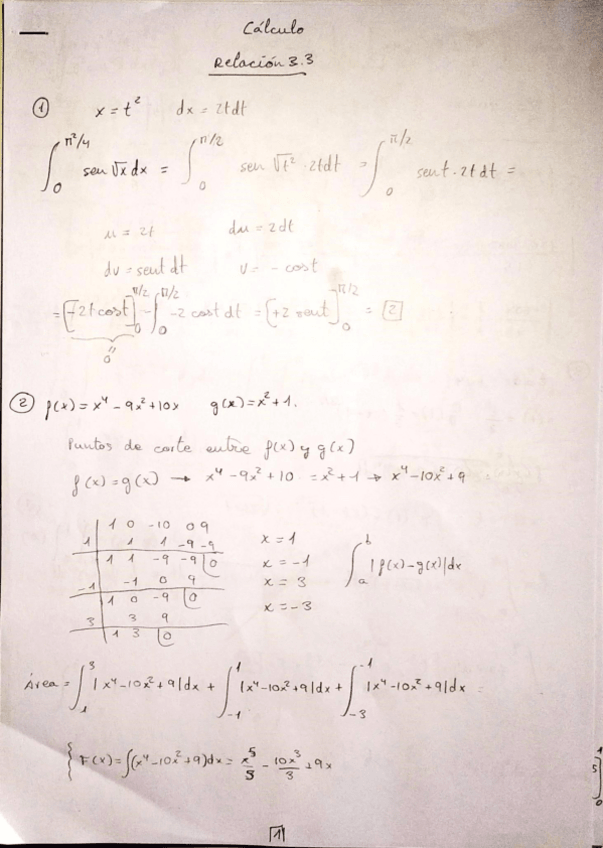 Cálculo
Relación 3.3
① x = t² dx = 2tdt
∫₀^(π²/4) sen √x dx = ∫₀^(π/2) sen √t² · 2tdt = ∫₀^(π/2) sent · 2t dt =
u = 2t du = 2dt
dv = sent dt v = - cost
= [-2t cost]₀^(π/2) - ∫₀^(π/2) -2 cost dt = [+2 sent]₀^(π/2) = 2
0
② f(x) = x⁴ - 9x² + 10x g(x) = x² + 1.
Puntos de corte entre f(x) y g(x)
f(x) = g(x) → x⁴ - 9x² + 10 = x² + 1 → x⁴ - 10x² + 9
1 0 -10 0 9
1 1 1 -9 -9
1 1 -9 -9 0
-1 -1 0 9
1 0 -9 0
3 3 9
1 3 0
x = 1
x = -1
x = 3
x = -3
∫ₐᵇ |f(x) - g(x)| dx
Área = ∫₁³ |x⁴ - 10x² + 9| dx + ∫₋₁¹ |x⁴ - 10x² + 9| dx + ∫₋₃⁻¹ |x⁴ - 10x² + 9| dx =
{ F(x) = ∫(x⁴ - 10x² + 9) dx = x⁵/5 - 10x³/3 + 9x
1